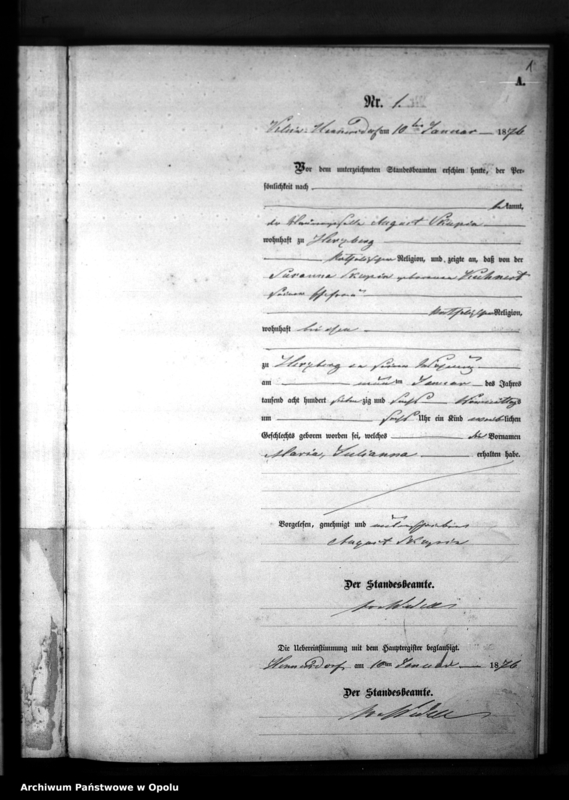 1.
A.
Nr. 1.
Hennersdorf am 10 ten Januar 1876
Vor dem unterzeichneten Standesbeamten erschien heute, der Per-
sönlichkeit nach
bekannt,
der August Skupin
wohnhaft zu Herzberg
katholischer Religion, und zeigte an, daß von der
Susanna Skupin geborene Kuhnert
seiner Ehefrau
katholischer Religion,
wohnhaft bei ihm
zu Herzberg in seiner Wohnung
am neunten Januar des Jahrs
tausend acht hundert siebenzig und sechs Vormittags
um sechs Uhr ein Kind weiblichen
Geschlechts geboren worden sei, welches die Vornamen
Maria, Julianna erhalten habe.
Vorgelesen, genehmigt und unterschrieben
August Skupin
Der Standesbeamte.
Die Uebereinstimmung mit dem Hauptregister beglaubigt.
Hennersdorf am 10ten Januar 1876
Der Standesbeamte.
Archiwum Państwowe w Opolu